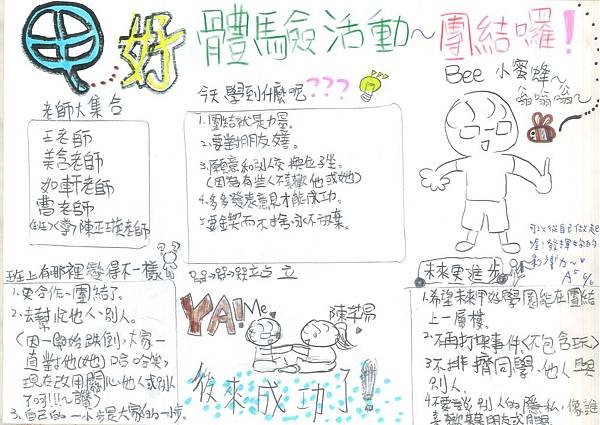 甲好 體驗活動~團結囉!
老師大集合
王老師
美含老師
如軒老師
曹老師
(班)(導)陳正瑛老師
今天學到什麼呢???
1.團結就是力量。
2.要對朋友好。
3.願意和別人交換位子坐。
(因為有些人不喜歡他或她)
4.多多發表意見才能成功。
5.要鍥而不捨,永不放棄。
Bee 小蜜蜂~
嗡嗡嗡~
可以從自己做起
喔!發揮你的
影響力~
A+
班上有哪裡變得不一樣
1.更合作、團結了。
2.去幫忙他人、別人。
(因一開始跌倒,大家一
直對他(她)哈哈笑,
現在改用關心他人或別人
了呵!!~讚)
3.自己的一小步是大家的一步。
YA! Me
後來成功了!
未來更進步
1.希望未來甲好學園能在團結
上一層樓。
2.不再打架事件<不包含玩>
3.不排擠同學、他人與
別人。
4.不要說別人的隱私,像誰